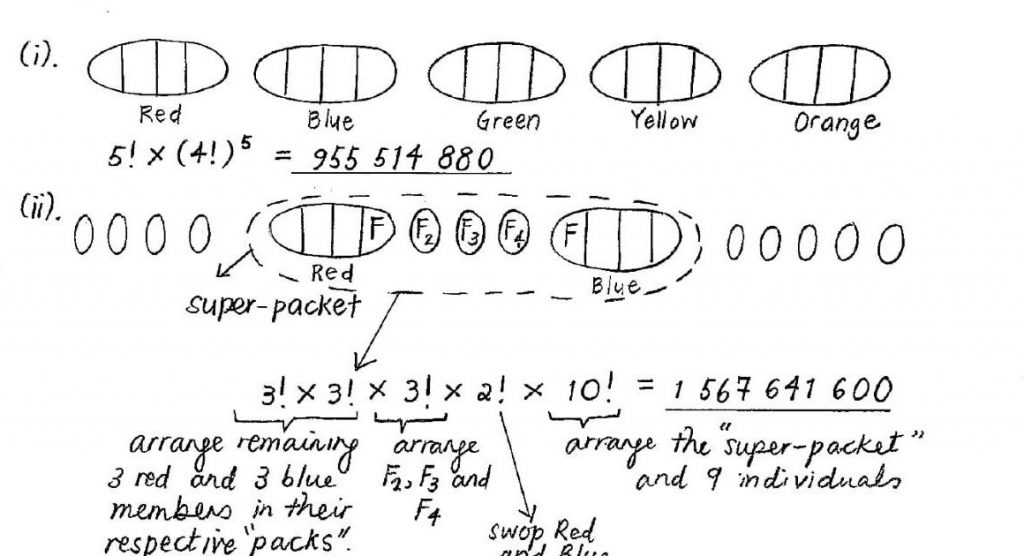 (i).
Red Blue Green Yellow Orange
5! × (4!)⁵ = 955 514 880
(ii).
F F₂ F₃ F₄ F
Red Blue
super-packet
3! × 3! × 3! × 2! × 10! = 1 567 641 600
arrange remaining arrange arrange the "super-packet"
3 red and 3 blue F₂, F₃ and and 9 individuals
members in their F₄
respective "packs". swop Red
and Blue